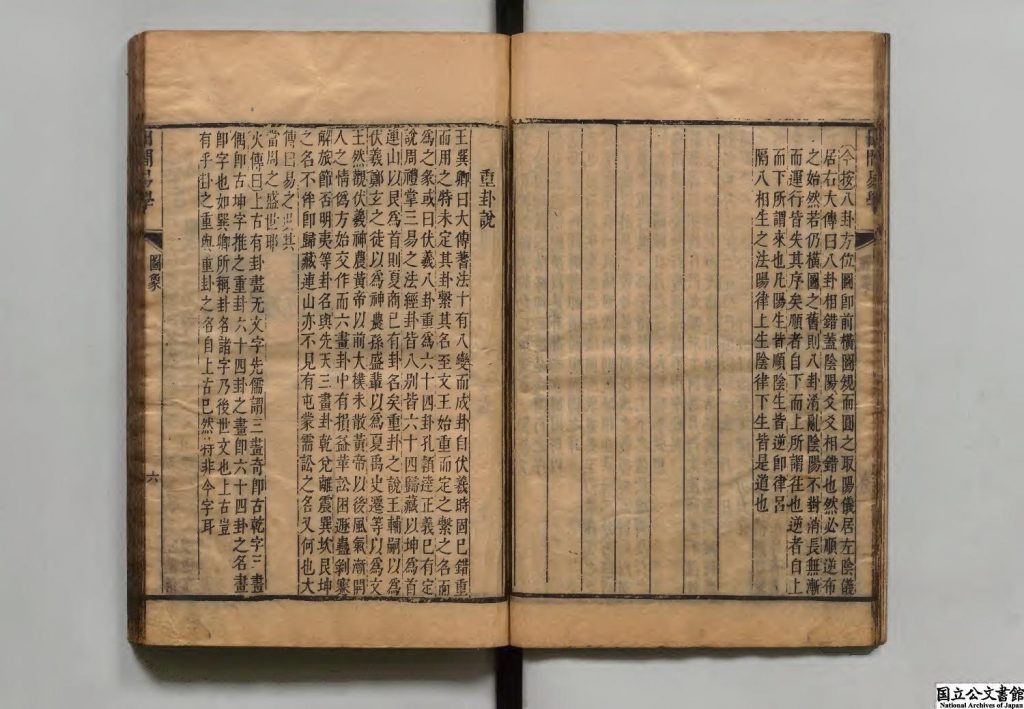 今按八卦方位圖即前橫圖規而圓之取陽儀居左陰儀
居右大傳曰八卦相錯蓋陰陽爻爻相錯也然必順逆布
之始然若仍橫圖之舊則八卦淆亂陰陽不對消長無漸
而運行皆失其序矣順者自下而上所謂往也逆者自上
而下所謂來也凡陽生皆順陰生皆逆即律呂
隔八相生之法陽律上生陰律下生皆是道也
重卦說
王巽卿曰大傳蓍法十有八變而成卦自伏羲時固已錯重
而用之特未定其卦繫其名至文王始重而定之繫之名而
為之彖或曰伏羲八卦重為六十四卦孔穎達正義已有定
說周禮掌三易之法經卦皆八別皆六十四歸藏以坤為首
連山以艮為首則夏商已有卦名矣重卦之說王輔嗣以為
伏羲鄭玄之徒以為神農孫盛輩以為夏禹史遷等以為文
王然觀伏羲神農黃帝以前大樸未散黃帝以後風氣漸開
人之情偽方始交作而六畫卦中有損益革訟困遯蠱剝蹇
解旅節否明夷等卦名與先天三畫卦乾兌離震巽坎艮坤
之名不侔即歸藏連山亦不見有屯蒙需訟之名又何也大
傳曰易之興其
當周之盛世耶
火傳曰上古有卦畫无文字先儒謂三畫奇即古乾字三畫
偶即古坤字推之重卦六十四卦之畫即六十四卦之名畫
即字也如巽卿所稱卦名諸字乃後世文也上古豈
有乎卦之重與重卦之名自上古已然特非今字耳
圖象
六
国立公文書館
National Archives of Japan